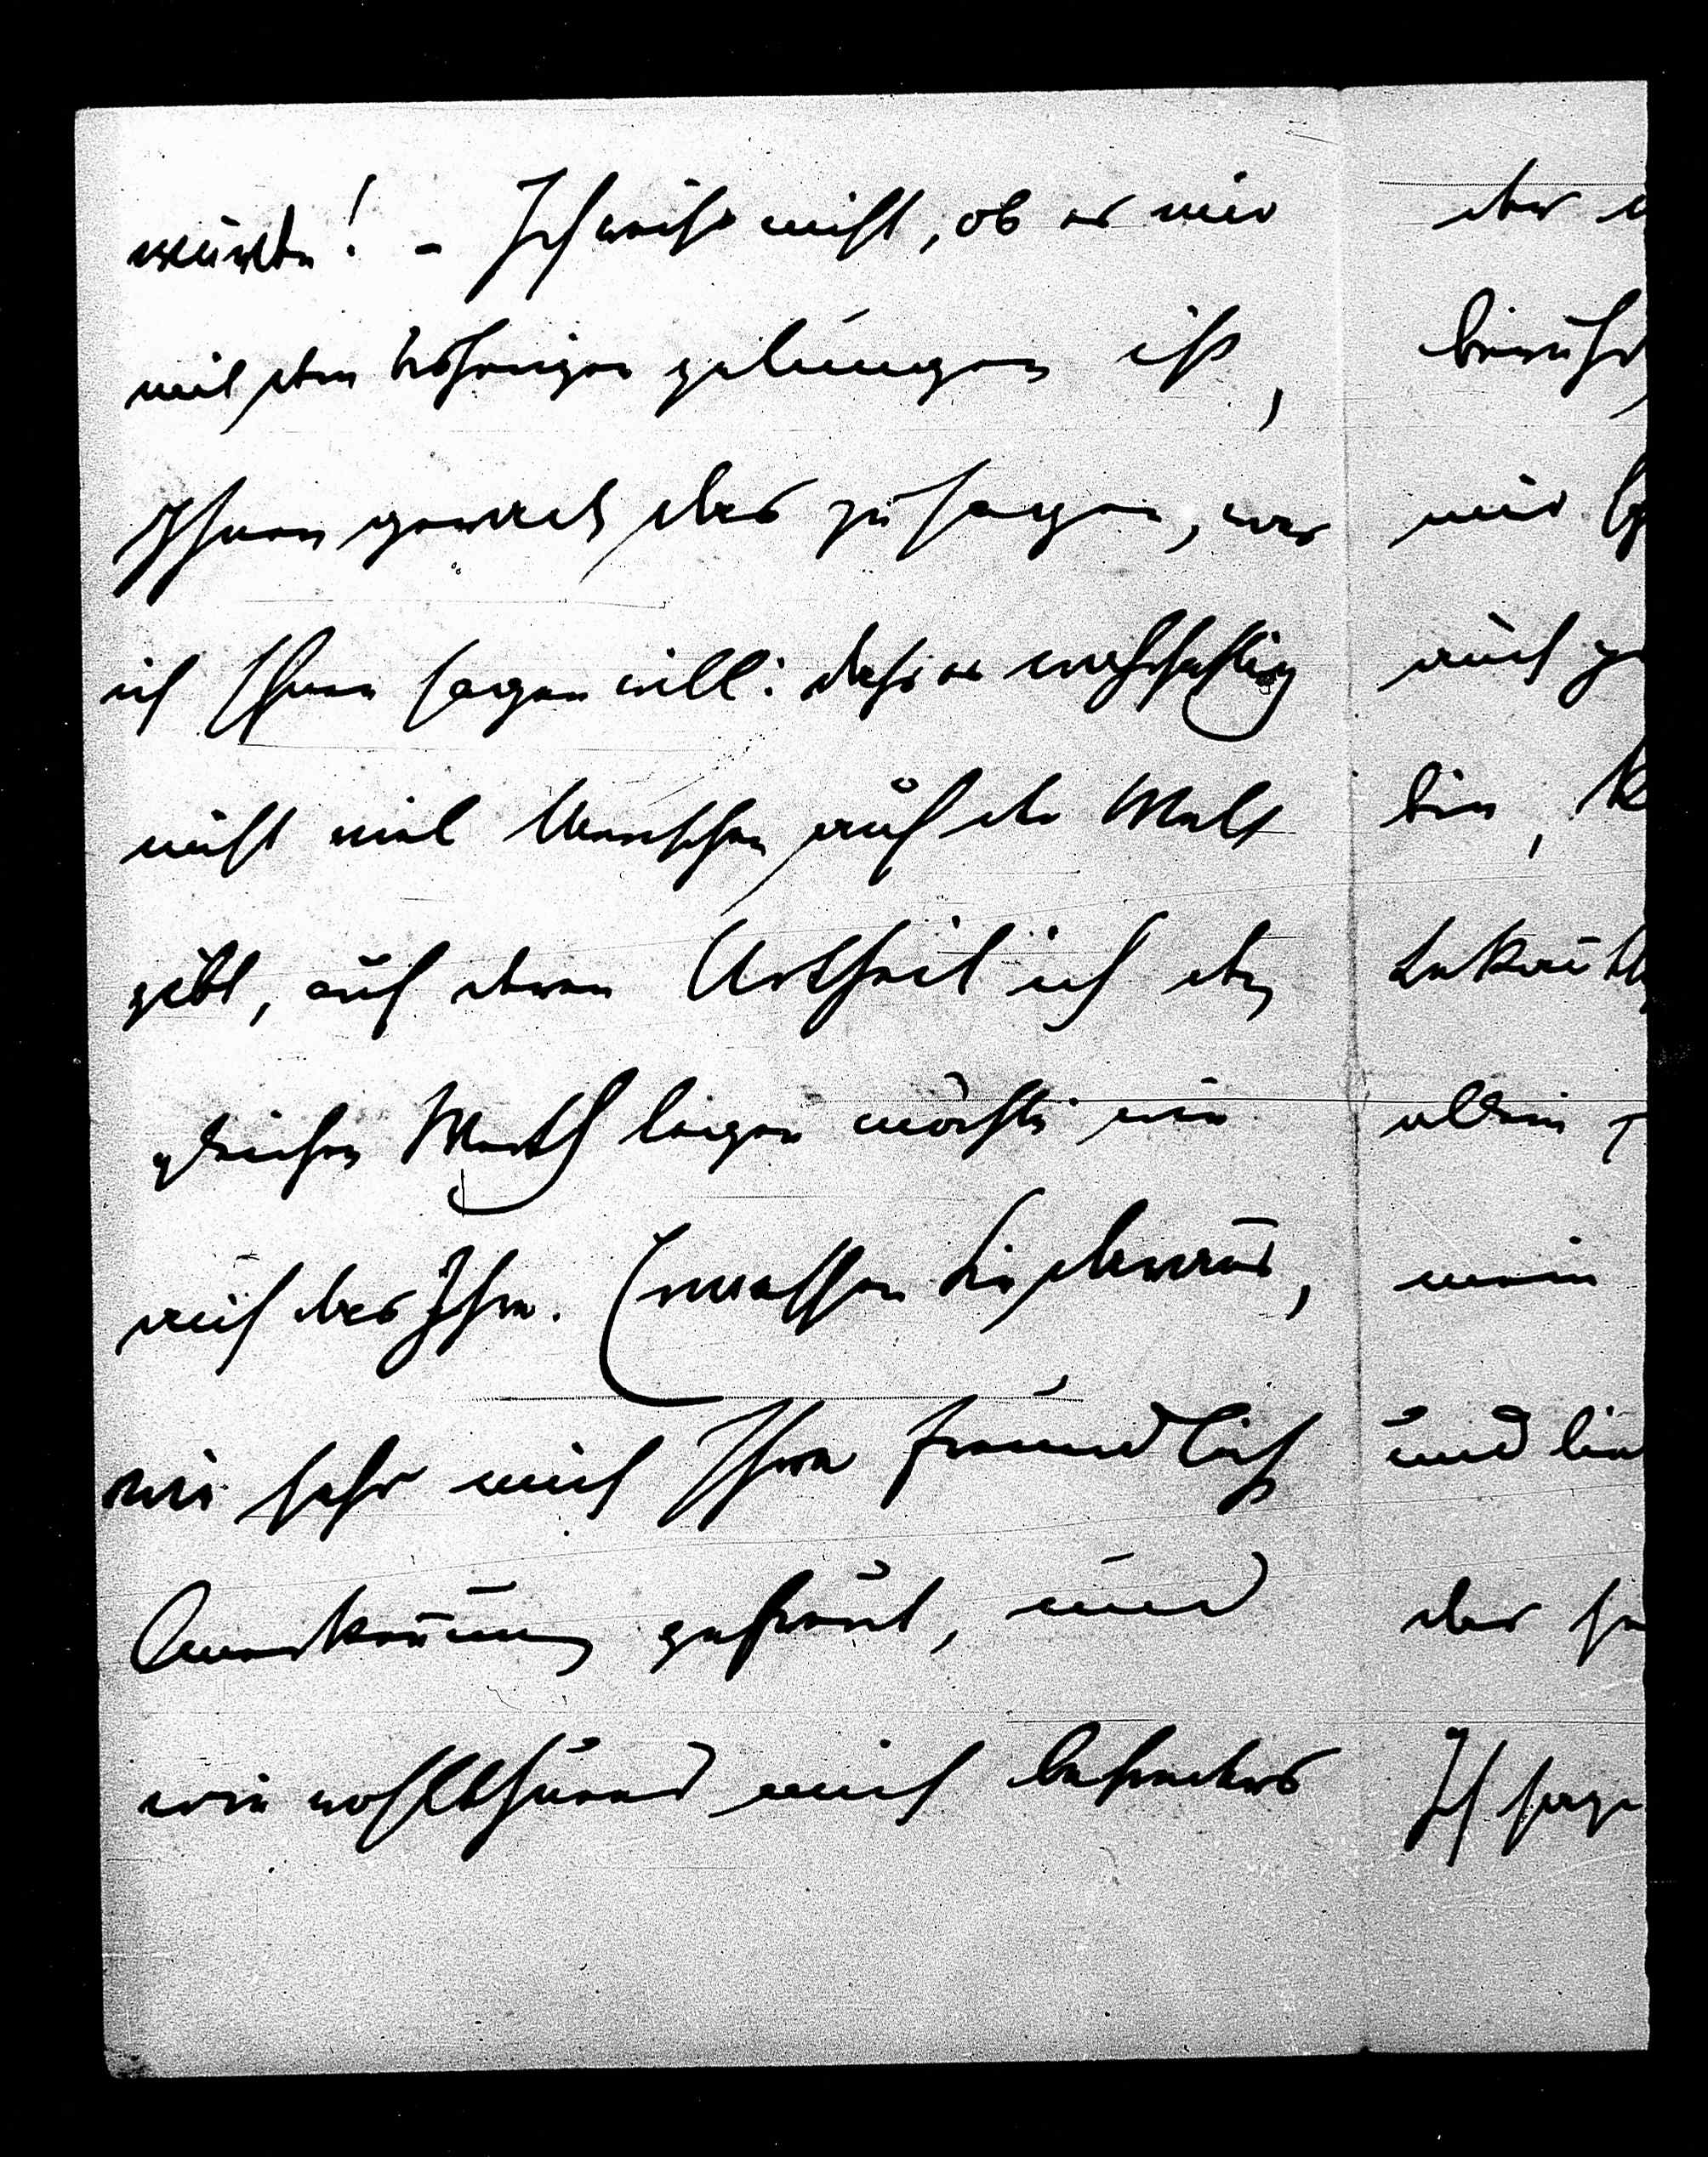 würde! – Ich weiß nicht, ob es mir
mit dem bisherigen gelungen ist,
Ihnen gerade das zu sagen, was
ich Ihnen sagen will: daß es wahrhaftig
nicht viel Menschen auf der Welt
gibt, auf deren Urtheil ich den
gleichen Werth legen möchte wie
auf das Ihre. Ermessen Sie daraus,
wie sehr mich Ihre freundliche
Anerkennung gefreut, und
wie wohlthuend mich besonders
der
berühr
mir
auch
bin,
allein
mein
und
der
Ich sage